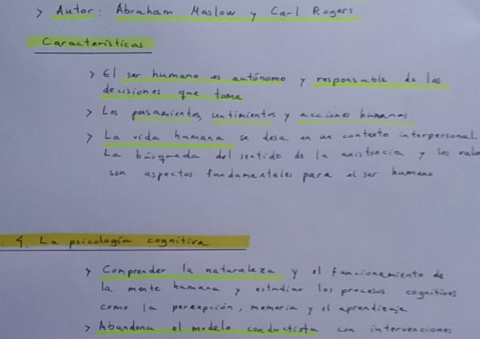 > Autor: Abraham Maslow y Carl Rogers
Características
> El ser humano es autónomo y responsable de los
decisiones que toma
> Los pensamientos, sentimientos y acciones humanas
> La vida humana se desa en un contexto interpersonal
La búsqueda del sentido de la existencia y los valo
son aspectos fundamentales para el ser humano
4. La psicología cognitiva
> Comprender la naturaleza y el funcionamiento de
la mente humana y estudiar los procesos cognitivos
como la percepción, memoria y el aprendizaje
> Abandona el modelo conductista con intervenciones